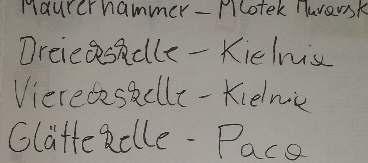 Maurerhammer - Mlotek Murarsk
Dreieckskelle - Kielnia
Viereckskelle - Kielnia
Glättekelle - Paca